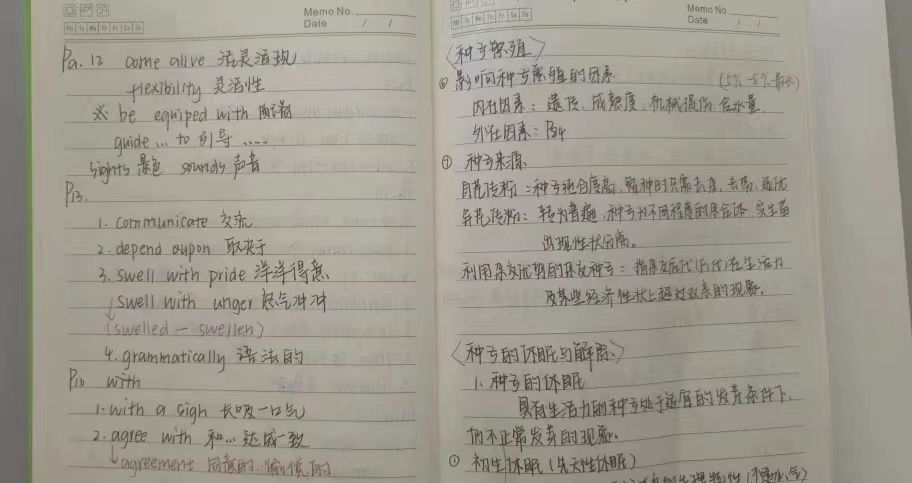 Memo No.
Date / /
Mo Tu We Th Fr Sa Su
Pa. 12 come alive 活灵活现
flexibility 灵活性
※ be equiped with 配备
guide ... to 引导 ....
sights 景色 sounds 声音
P13.
1. communicate 交流
2. depend oupon 取决于
3. swell with pride 洋洋得意
swell with unger 怒气冲冲
(swelled — swellen)
4. grammatically 语法的
P18 with
1. with a sigh 长吸一口气
2. agree with 和... 达成一致
agreement 同意的, 愉悦的
Memo No.
Date / /
Mo Tu We Th Fr Sa Su
〈种子繁殖〉
⑥ 影响种子繁殖的因素
(5%-6%最长)
内在因素：遗传、成熟度、机械损伤、含水量
外在因素：P34
⑦ 种子来源
自花传粉：种子纯合度高，留种时只需去杂、去劣、选优
异花传粉：较为普遍，种子为不同程度的杂合体，实生苗
出现性状分离。
利用杂交优势的杂交种子：指杂交后代(F1代)在生活力
及某些经济性状上超过双亲的现象。
〈种子的休眠与解除〉
1. 种子的休眠
具有生活力的种子处于适宜的发芽条件下，
仍不正常发芽的现象。
① 初生休眠 (先天性休眠)